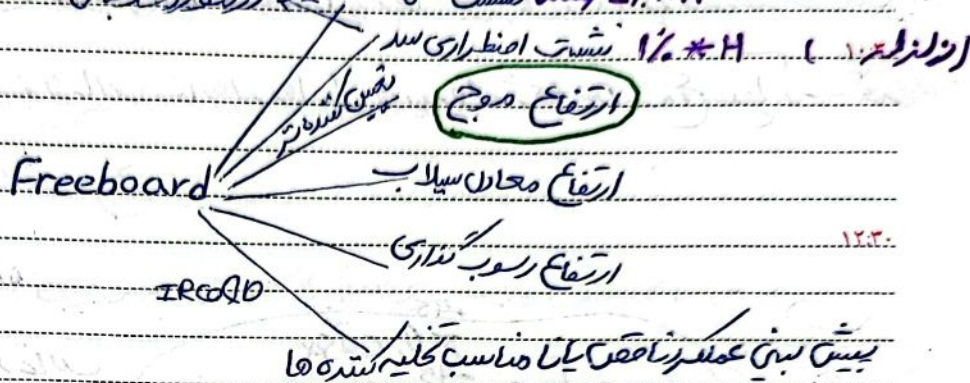 نشست اضطراری سد 1% * H (از لنز
تعیین کننده تر
ارتفاع موج
Freeboard
ارتفاع معادل سیلاب
۱۲:۳۰
ارتفاع رسوب گذاری
IRCOLD
پیش بینی عملکرد ناقص یا نا مناسب تخلیه کننده ها